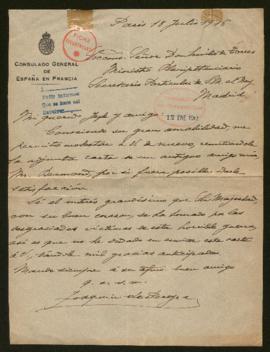 CONSULADO GENERAL
DE
ESPAÑA EN FRANCIA
Paris 18 Julio 1916
Excmo Señor Don Emilio de Torres
Ministro Plenipotenciario
Secretario Particular de S.M. el Rey
Madrid
Mi querido Jefe y amigo
Conociendo su gran amabilidad, me
permito molestar a V. de nuevo, remitiendole
la adjunta carta de un antiguo amigo mio,
Mr. por si fuera posible darle
satisfacción.
Sé el interés grandisimo que Su Majestad,
con su buen corazon, se ha tomado por las
desgraciadas victimas de esta horrible guerra,
asi es que no he dudado en enviar esta carta
á V, dandole mil gracias anticipadas
Mande siempre á su afmo buen amigo
q. e. s. m.
Joaquin